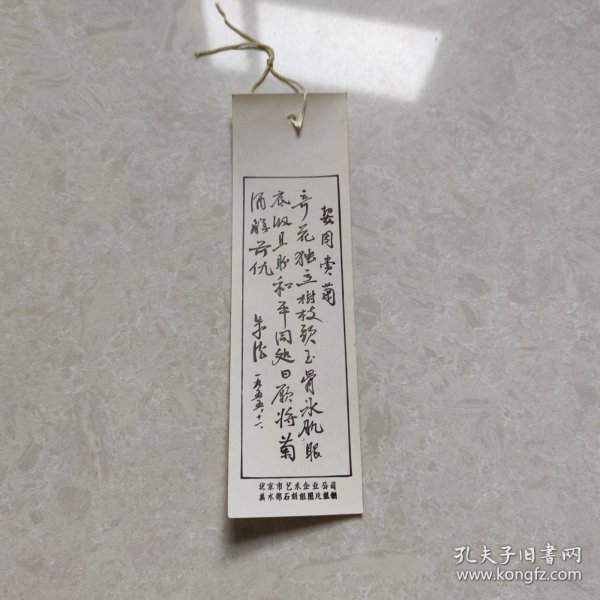 契园赏菊
奇花独立树枝头玉骨冰肌眼
底收且盼和平同处日愿将菊
酒解前仇
朱德
一九五五、十一、
北京市艺术企业公司
美术部石组组图片组制
孔夫子旧书网
www.kongfz.com